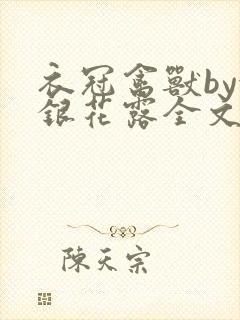 衣冠禽獸by
銀花露全文
陳天宗